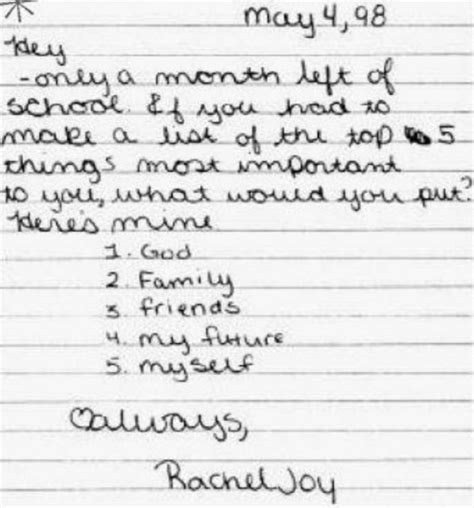 May 4, 98
Hey
- only a month left of
school. If you had to
make a list of the top 5
things most important
to you, what would you put?
Here's mine
1. God
2. Family
3. friends
4. my future
5. myself
♡always,
Rachel Joy